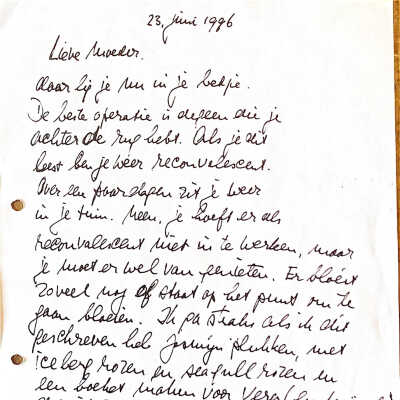 23. juni 1996
Lieve Moeder.
daar lig je nu in je bedje.
De beste operatie is degeen die je
achter de rug hebt. Als je dit
leest ben je weer reconvalescent.
Over een paar dagen zit je weer
in je tuin. Neen, je hoeft er als
reconvalescent niet in te werken, maar
je moet er wel van genieten. Er bloeit
zoveel nog of staat op het punt om te
gaan bloeien. Ik ga straks als ik dit
geschreven heb jasmijn plukken, met
iceberg rozen en seagull rozen en
een boeket maken voor